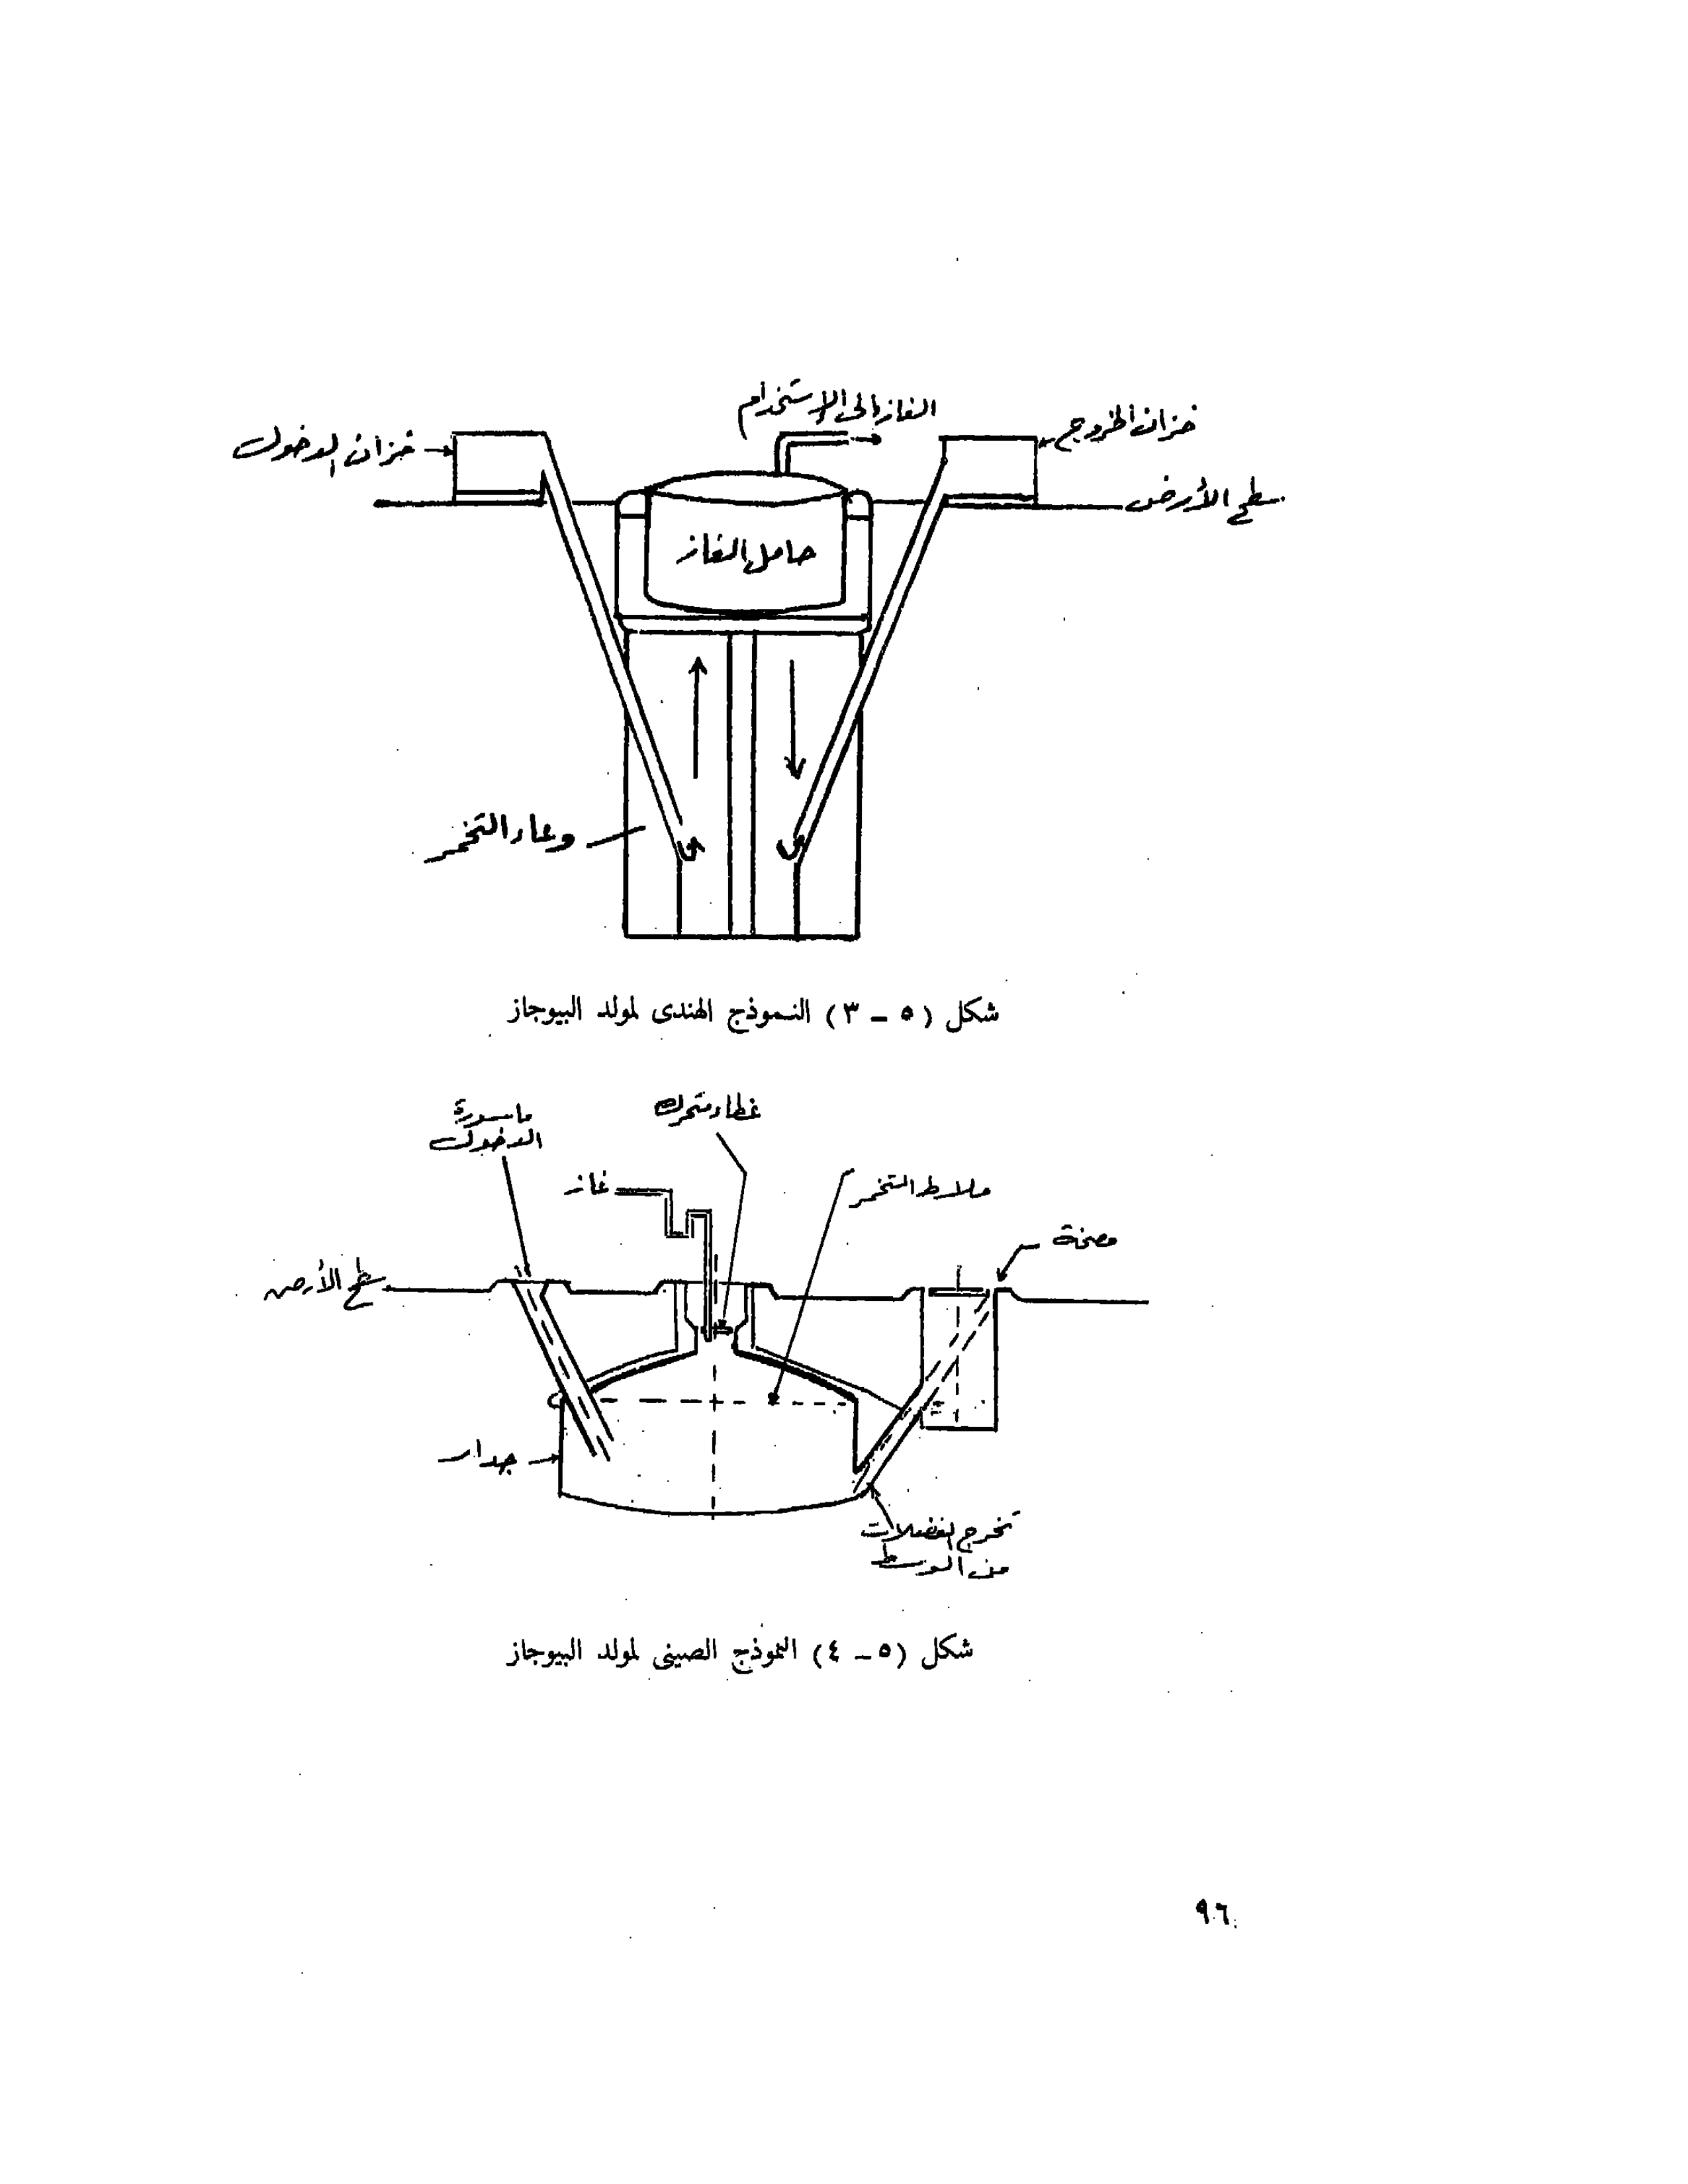 الغاز إلى الإستخدام
خزان الخروج
خزان الدخول
سطح الأرض
حامل الغاز
وعاء التخمر
شكل (٥ ــ ٣) النـموذج الهندى لمولد البيوجاز
ماسورة
الدخول
غطاء متحرك
غاز
ملاط التخمر
مضخة
سطح الأرض
جدار
تخرج الفضلات
من الوسط
شكل (٥ ــ ٤) النموذج الصينى لمولد البيوجاز
٩٦